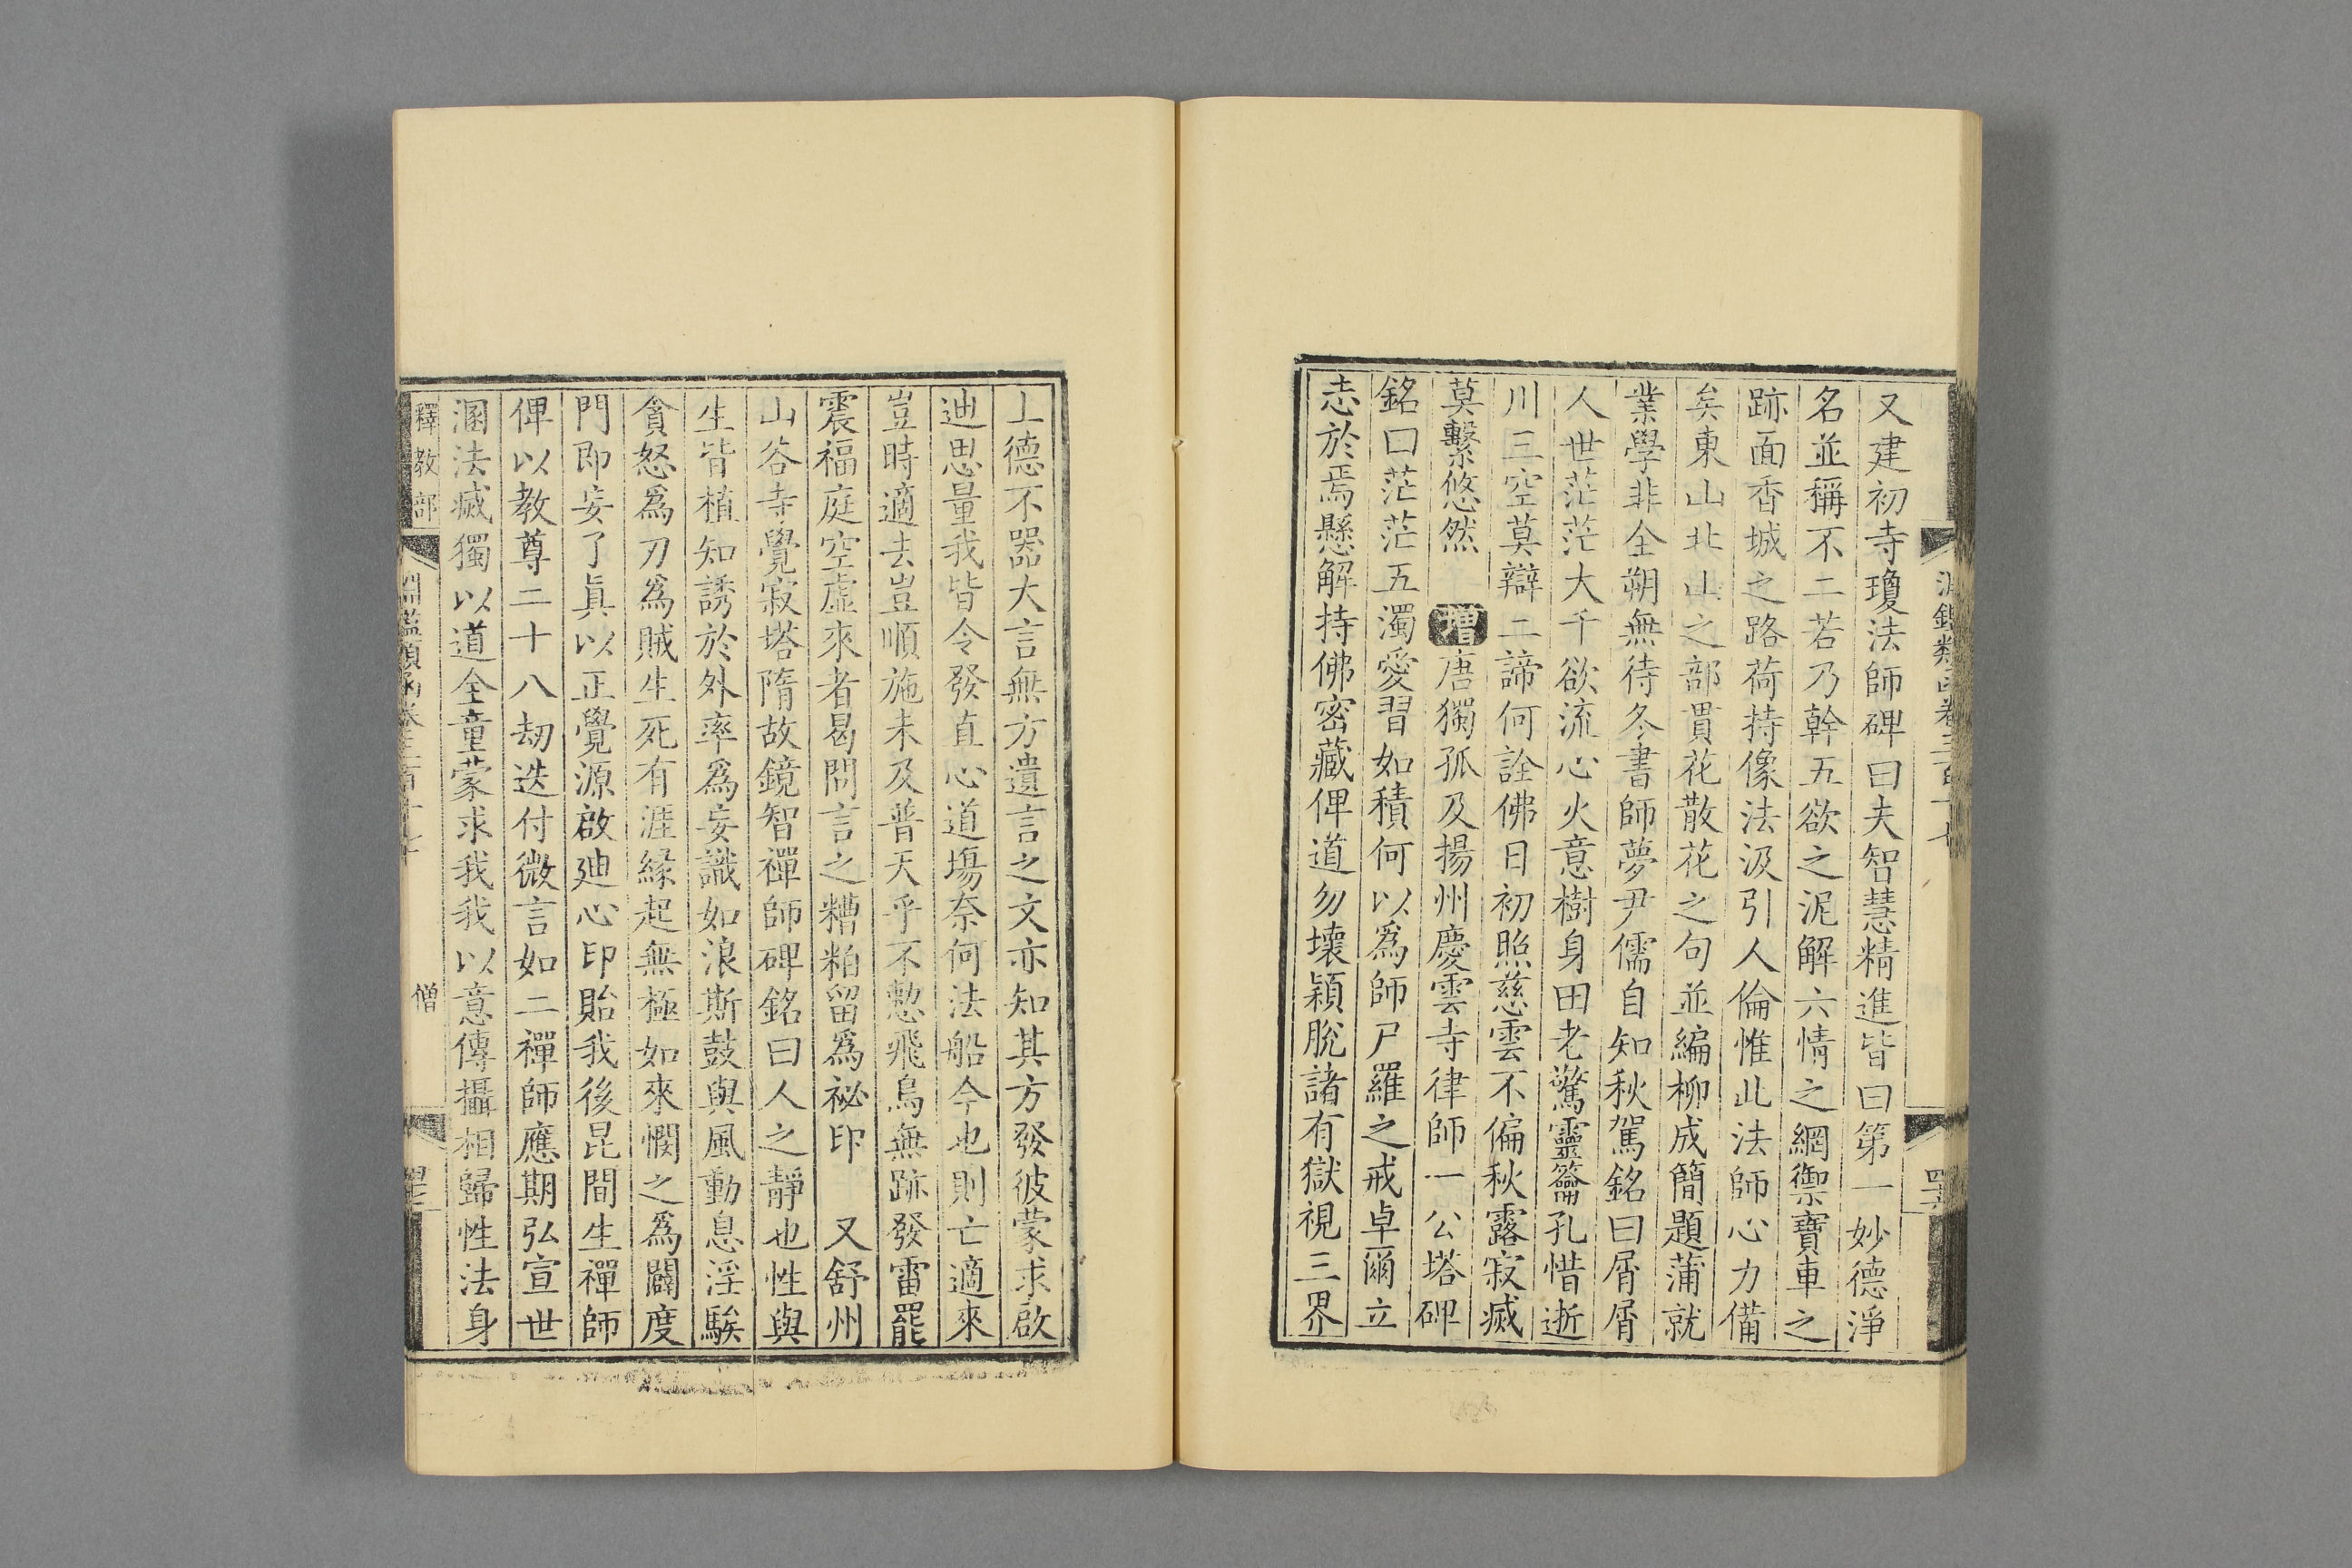 又建初寺瓊法師碑曰夫智慧精進皆曰第一妙德淨
名並稱不二若乃幹五欲之泥解六情之網禦寶車之
跡面香城之路荷持像法汲引人倫惟此法師心力備
矣東山北山之部貫花散花之句並編柳成簡題蒲就
業學非全朔無待冬書師夢尹儒自知秋駕銘曰屑屑
人世茫茫大千欲流心火意樹身田老驚靈籥孔惜逝
川三空莫辯二諦何詮佛日初照慈雲不偏秋露寂滅
莫繫悠然 增唐獨孤及揚州慶雲寺律師一公塔碑
銘曰茫茫五濁愛習如積何以爲師尸羅之戒卓爾立
志於焉懸解持佛密藏俾道勿壞穎脫諸有獄視三界
上德不器大言無方遺言之文亦知其方發彼蒙求啟
迪思量我皆令發直心道場奈何法船今也則亡適來
豈時適去豈順施未及普天乎不憗飛鳥無跡發雷罷
震福庭空虛來者曷問言之糟粕留爲祕印 又舒州
山谷寺覺寂塔隋故鏡智禪師碑銘曰人之靜也性與
生皆植知誘於外率爲妄識如浪斯鼓與風動息淫駭
貪怒爲刃爲賊生死有涯緣起無極如來憫之爲闢度
門即妄了眞以正覺源啟廸心印貽我後昆間生禪師
俾以教尊二十八劫迭付微言如二禪師應期弘宣世
溷法滅獨以道全童蒙求我我以意傳攝相歸性法身
釋教部 淵鑑類函卷三百十七 僧